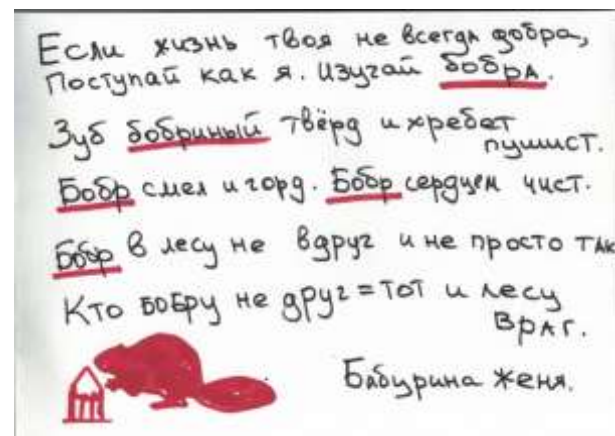 Если жизнь твоя не всегда добра,
Поступай как я. Изучай бобра.
Зуб бобриный твёрд и хребет
пушист.
Бобр смел и горд. Бобр сердцем чист.
Бобр в лесу не вдруг и не просто так
Кто бобру не друг = тот и лесу
враг.
Бабурина Женя.